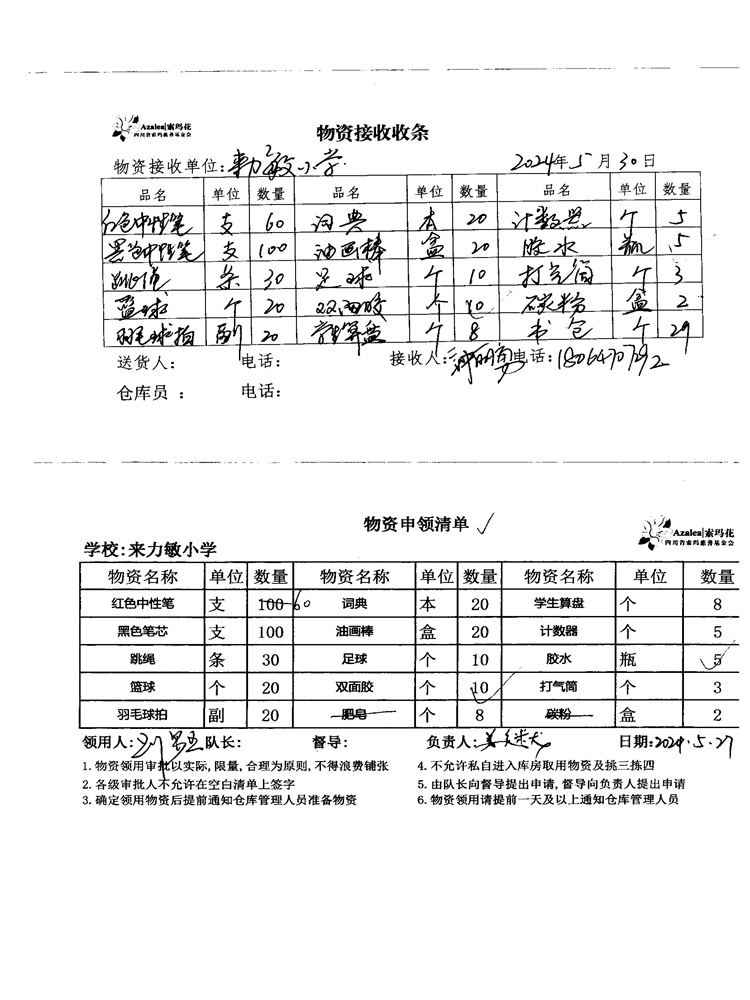 Azalea|索玛花
四川省索玛慈善基金会
物资接收收条
物资接收单位:来力敏小学 2024年5月30日
品名 单位 数量 品名 单位 数量 品名 单位 数量
红色中性笔 支 60 词典 本 20 计数器 个 5
黑色中性笔 支 100 油画棒 盒 20 胶水 瓶 5
跳绳 条 30 足球 个 10 打气筒 个 3
篮球 个 20 双面胶 个 10 碳粉 盒 2
羽毛球拍 副 20 算盘 个 8 书包 个 29
送货人: 电话: 接收人: 电话:18064707292
仓库员 : 电话:
物资申领清单 ✓
Azalea|索玛花
四川省索玛慈善基金会
学校:来力敏小学
物资名称 单位 数量 物资名称 单位 数量 物资名称 单位 数量
红色中性笔 支 100 60 词典 本 20 学生算盘 个 8
黑色笔芯 支 100 油画棒 盒 20 计数器 个 5
跳绳 条 30 足球 个 10 胶水 瓶 5
篮球 个 20 双面胶 个 10 打气筒 个 3
羽毛球拍 副 20 肥皂 个 8 碳粉 盒 2
领用人: 队长: 督导: 负责人: 日期:2024.5.27
1.物资领用审批以实际,限量,合理为原则,不得浪费铺张
2.各级审批人不允许在空白清单上签字
3.确定领用物资后提前通知仓库管理人员准备物资
4.不允许私自进入库房取用物资及挑三拣四
5.由队长向督导提出申请,督导向负责人提出申请
6.物资领用请提前一天及以上通知仓库管理人员